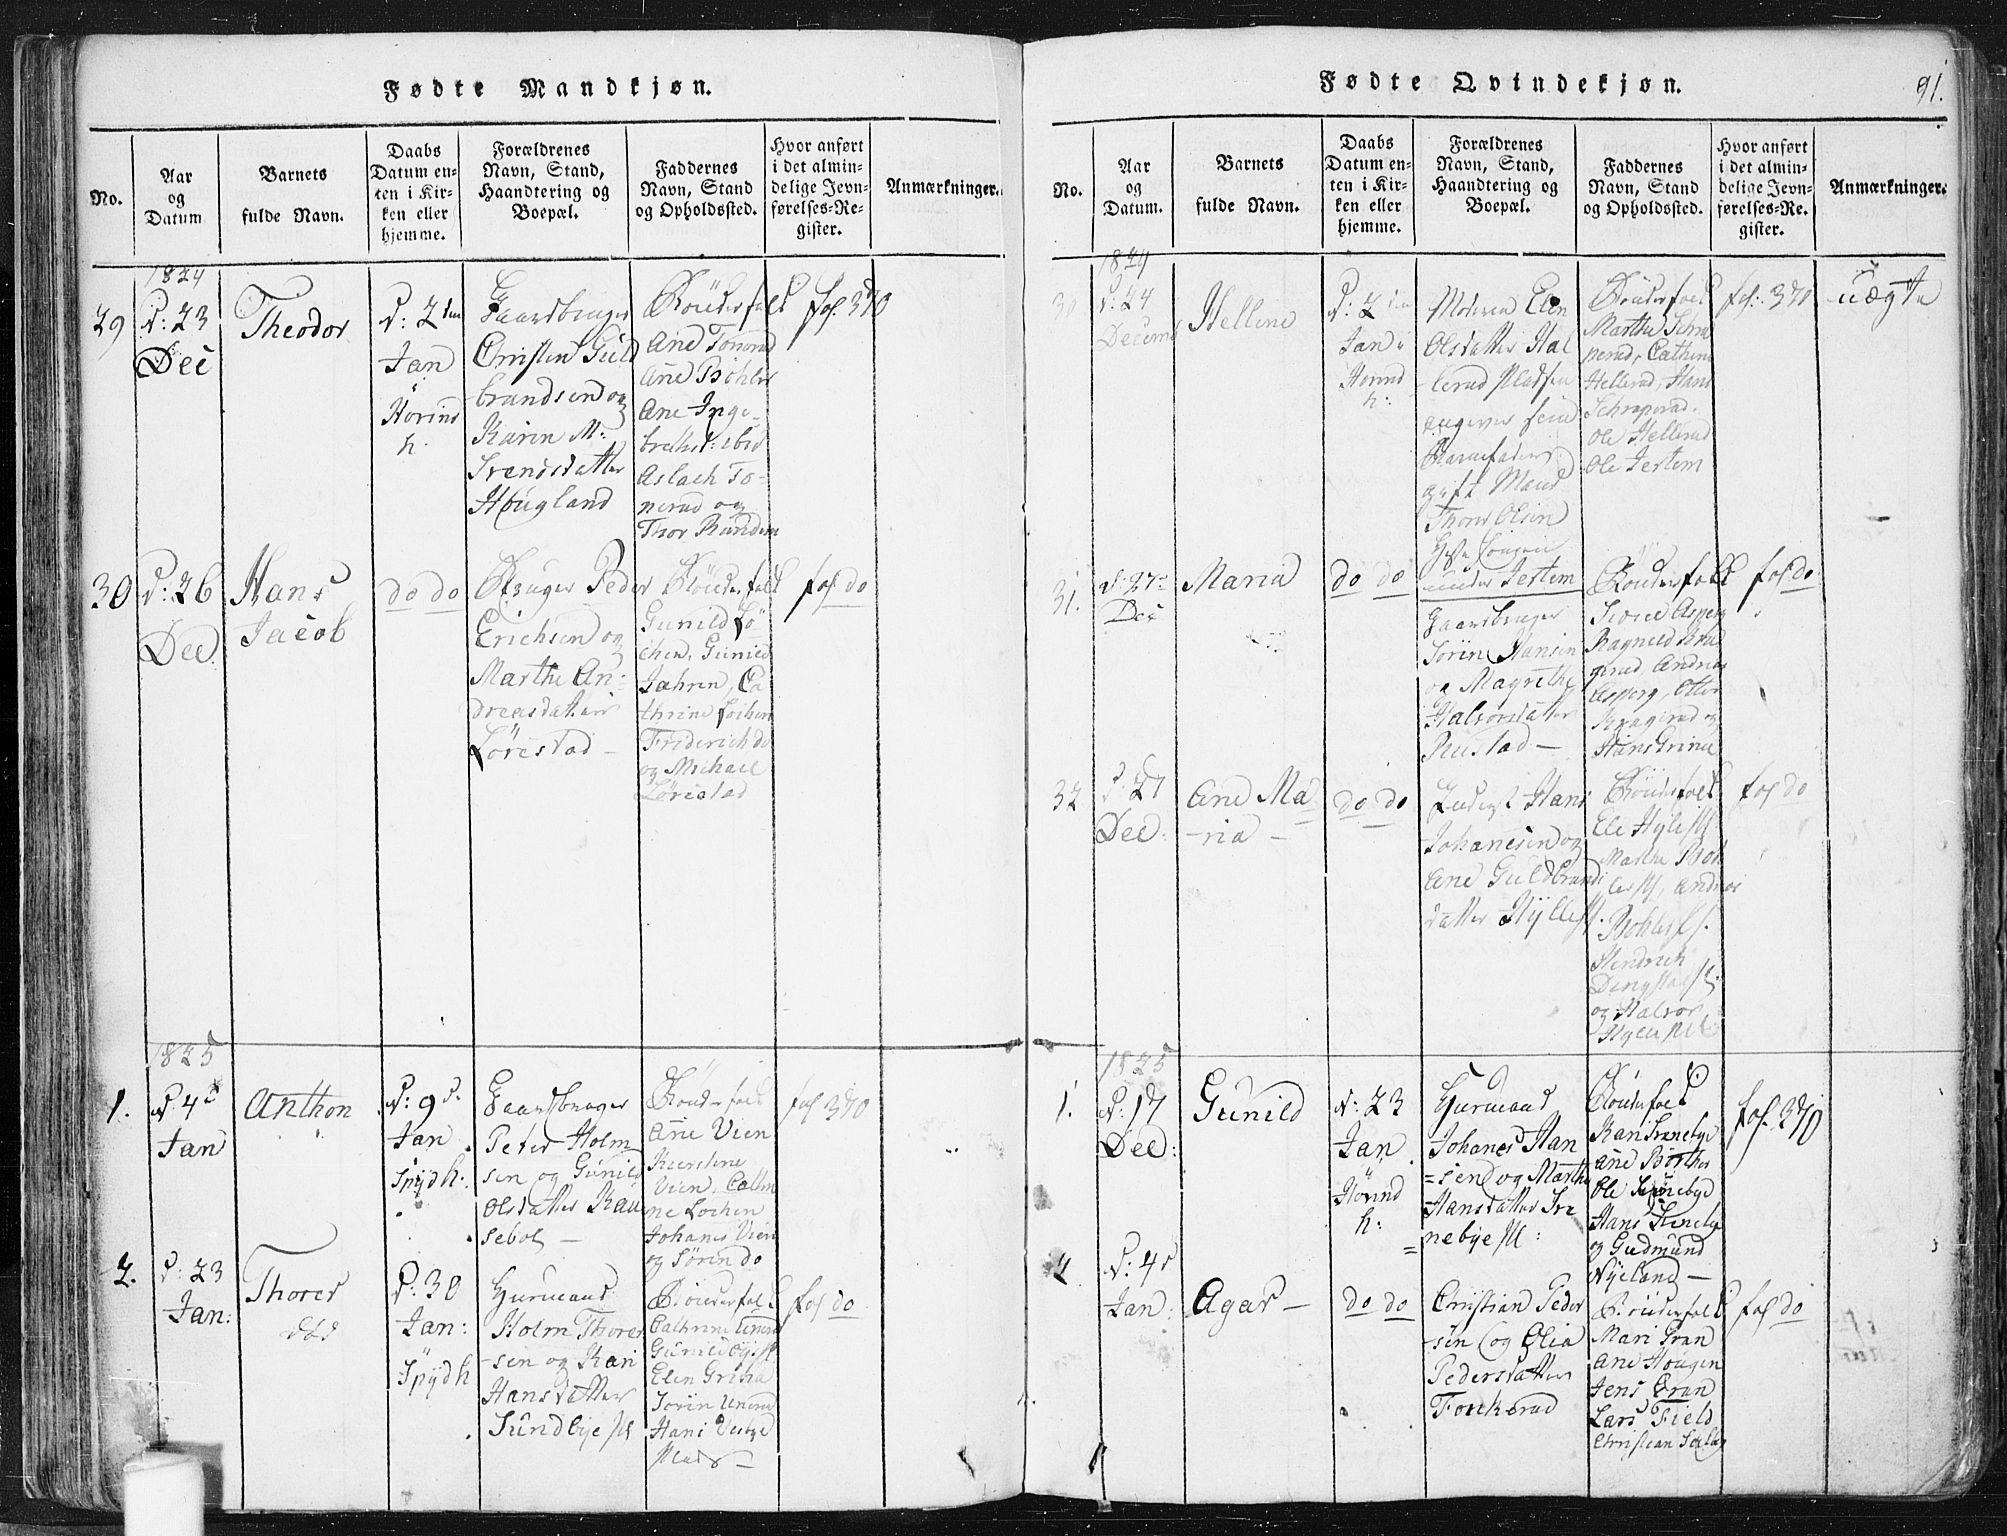 Fødte Mandkjøn.
No.
Aar
og
Datum
Barnets
fulde Navn.
Daabs
Datum en-
ten i Kir-
ken eller
hjemme.
Forældrenes
Navn, Stand,
Haandtering og
Boepæl.
Faddernes
Navn, Stand
og Opholdssted.
Hvor anført
i det almin-
delige Jevn-
førelses-Re-
gister.
Anmærkninger.
1824
29
d: 23
Dec
Theodor
d: 2den
Jan
Hövind
h.
Gaardbruger
Christen Guld
brandsen og
Karen M:
Svendsdatter
Hougland
Bönderfolk
Ane Tonerud
Ane Böhler
Ane Inge-
brethsd: ibid
Aslach To-
nerud og
Thor Randem
fol. 370
30
d: 26
Dec
Hans
Jacob
do do
Gbruger Peder
Erichsen og
Marthe An-
dreasdatter
Lörestad —
Bönderfolk
Gunild Lö-
chen, Gunild
Jahren, Ca
thrine Löchen
Friderich do
og Michael
Lörestad
fol do
1825
1.
d. 4d
Jan
Anthon
d: 9d.
Jan.
Spydh:
Gaardbruger
Peter Holm
sen og Gunild
Olsdatter Kau
sebol —
Bönderfolk
Ane Vien
Kierstine
Vien, Cathri
ne Lochen
Johanes Vien
og Sören do
fol 370
2.
d: 23
Jan:
Thores
död
d: 30
Jan:
Spydh
Huusmand
Holm Thores
-sen og Kari
Hansdatter
Sundbye Pl
Bönderfolk
Cathrine
Gunild
Elen
Sören
Hans Vestbye
Mads —
fol do
Fødte Qvindekjøn.
91.
No.
Aar
og
Datum.
Barnets
fulde Navn.
Daabs
Datum en-
ten i Kir-
ken eller
hjemme.
Forældrenes
Navn, Stand,
Haandtering og
Boepæl.
Faddernes
Navn, Stand
og Opholdssted.
Hvor anført
i det almin-
delige Jevn-
førelses-Re-
gister.
Anmærkninger.
1824
30
d: 24
Decemb
Hellene
d: 2den
Jan i
Hövind
h:
Moderen Elen
Olsdatter Hel
lerud Pladsen
angiver som
Barnefader
gift Mand
Thore Olsen
under Jertem
Bönderfolk
Marthe Schra
perud, Cathrine
Hellerud, Hans
Schraperud.
Ole Hellerud
Ole Jertem
fol: 370
uægte
31.
d: 27
Dec
Maria
do do
Gaardbruger
Sören Hansen
og Magrethe
Halvorsdatter
Rustad —
Bönderfolk
Asperg
Ragnild Kra
gerud, Andreas
Asperg, Otter
Kragerud og
Hans Grine
fol do
32
d: 27
Dec:
Ane Ma
-ria —
do do
Inderst Hans
Johanesen og
Ane Guldbrands
datter Hylle Pl.
Bönderfolk
Ele Hylle Pl
Marthe Böh
ler Pl, Andreas
Böhler Pl.
Hendrich
Dingstad Pl.
og Halvor
Hylle Pl
fol do
1825
1.
d: 17
Dec:
Gunild
d: 23
Jan.
Hövind
h:
Huusmand
Johanes Han
=sen og Marthe
Hansdatter Sve
nebye Pl:
Bönderfolk
Kari Svenebye
Ane Börther
Ole Svenebye
Hans Svenebye
og Gudmund
Nyeland —
fol. 370
2
d: 4d
Jan:
Agar —
do do
Christian Peder
-sen og Olia
Pedersdatter
Fonkerud
Bönderfolk
Mari Gran
Ane Hougen
Jens Gran
Lars Field
Christian
fol do